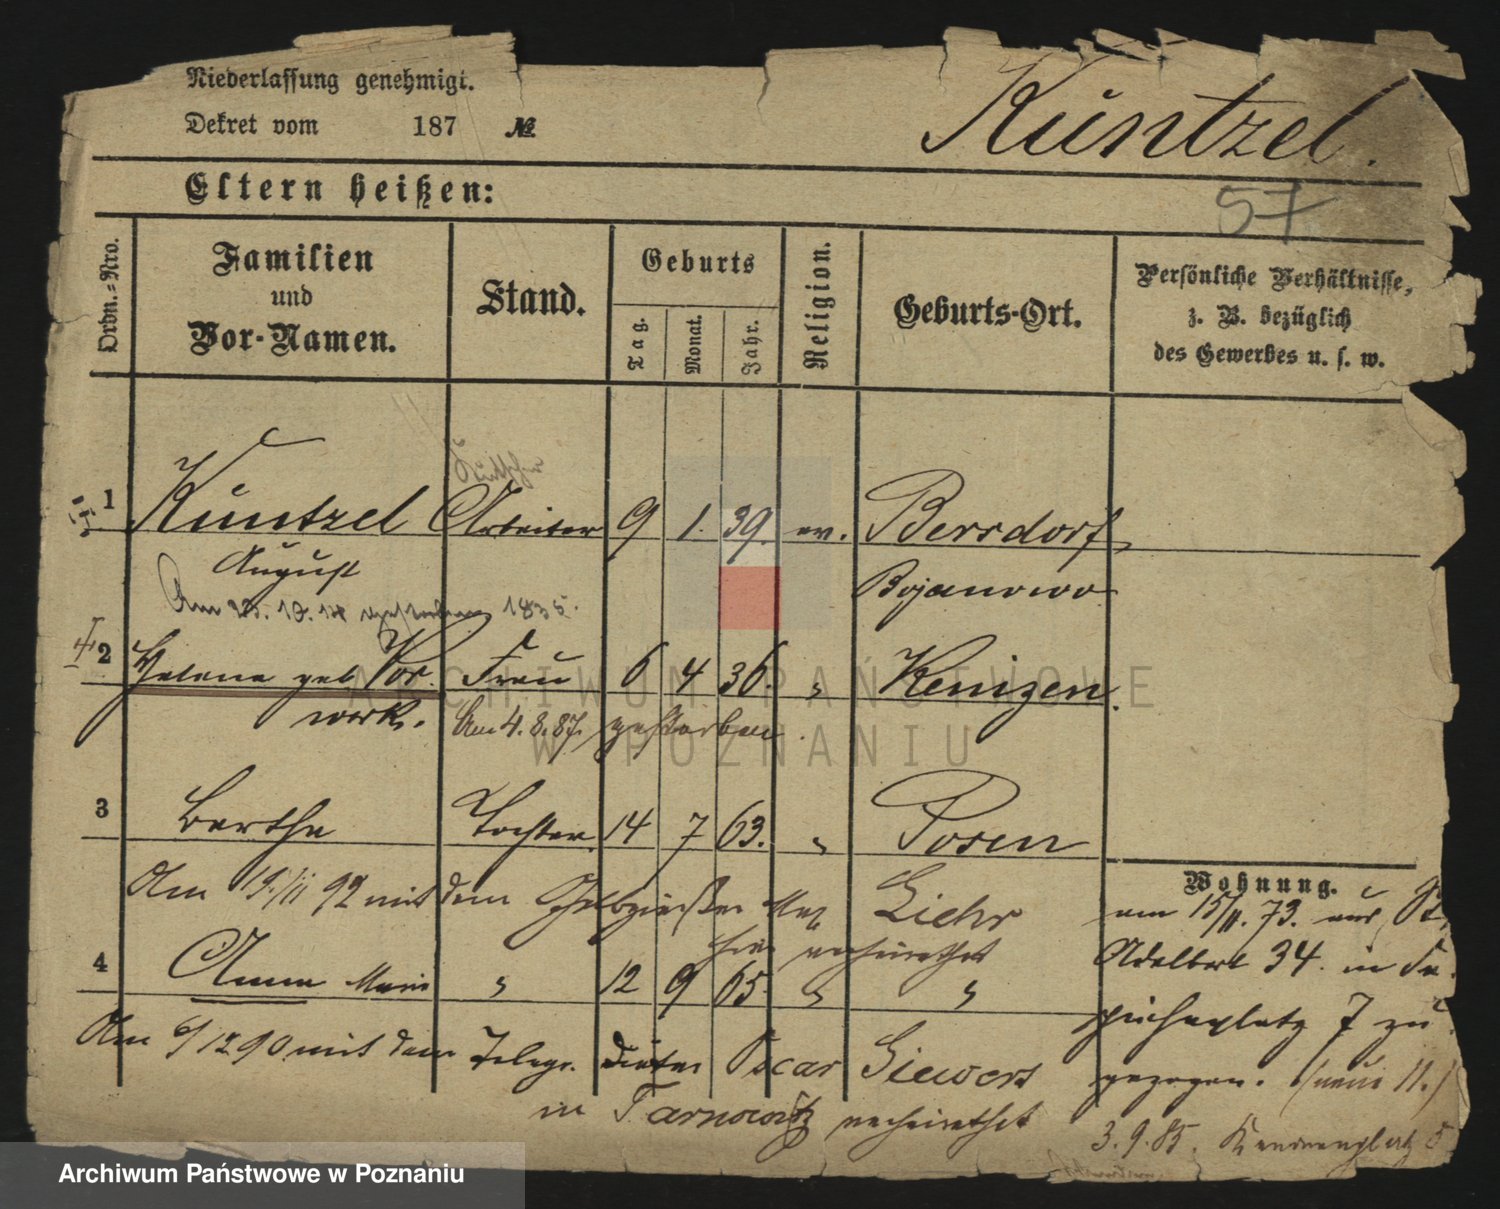 Niederlassung genehmigt.
Dekret vom 187 №
Küntzel.
57
Eltern heißen:
Ordn.=Nro.
Familien
und
Vor-Namen.
Stand.
Geburts
Tag.
Monat.
Jahr.
Religion.
Geburts-Ort.
Persönliche Verhältnisse,
z. B. bezüglich
des Gewerbes u. s. w.
Kutscher
1 Küntzel Arbeiter 9 1. 39. ev. Bersdorf
August Bojanowo
Am 23. 10. gestorben
2 Helene geb. Vor- Frau 6 4 36. " Kenizen.
werk. Am 4. 8. 87. gestorben.
3 Bertha Tochter. 14 7 63. " Posen
Wohnung.
Am 19/11 92 mit dem Gelbgießer Max Liehr
hier verheirathet
am 15/11. 73. aus St.
4 Anna Marie " 12 9 65. " "
Adelbert 34. in
platz 7 zu
Am 6/12 90 mit dem Telegr. Oscar Siewers
gezogen. (neue 11.)
in Tarnowitz verheirathet
3. 9. 85. 5
ARCHIWUM PAŃSTWOWE
W POZNANIU
Archiwum Państwowe w Poznaniu